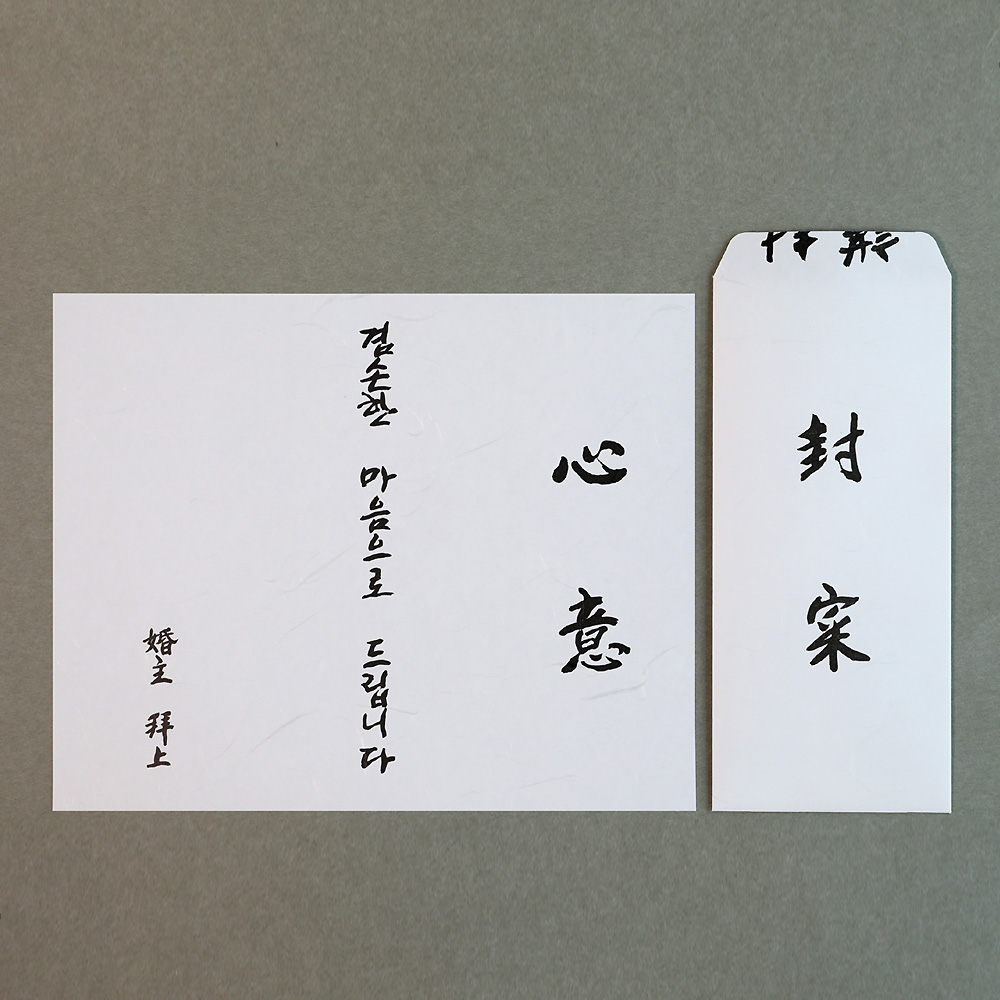 封寀
心意
겸손한 마음으로 드립니다
婚主 拜上